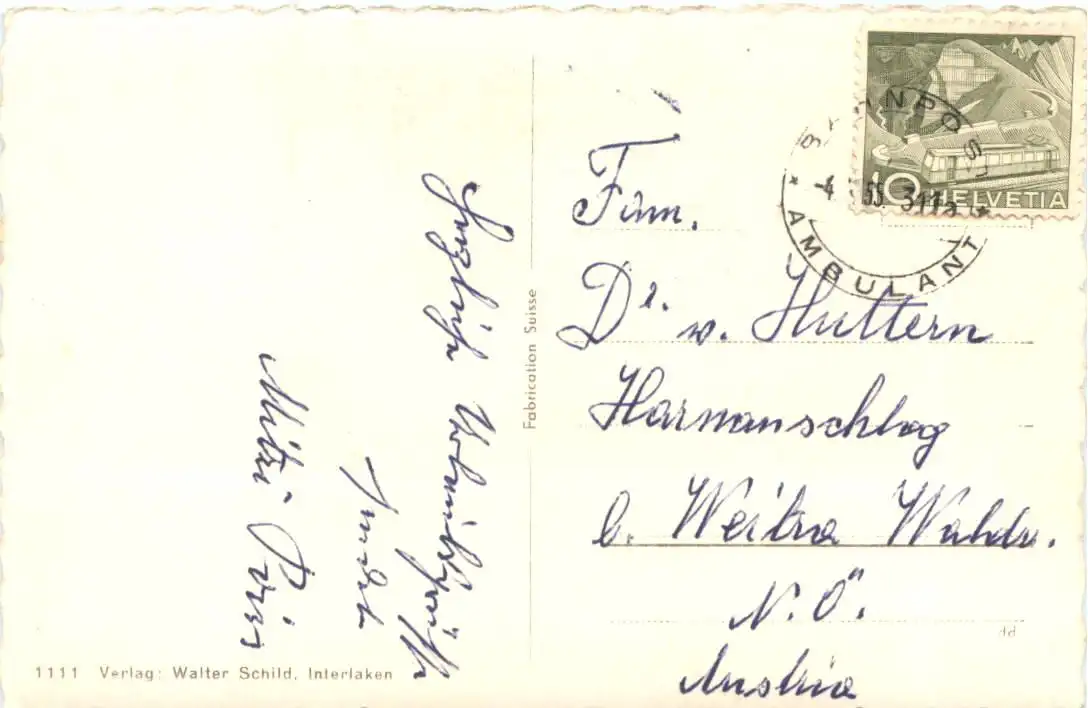 Herzliche Urlaubsgrüße
sendet
Mitzi Preis
Fam.
Dr. v. Huttern
Harmanschlag
b. Weitra Waldv.
N. Ö.
Austria
10
HELVETIA
BAHNPOST
* 4 55 3113 *
AMBULANT
Fabrication Suisse
dd
1111 Verlag: Walter Schild, Interlaken